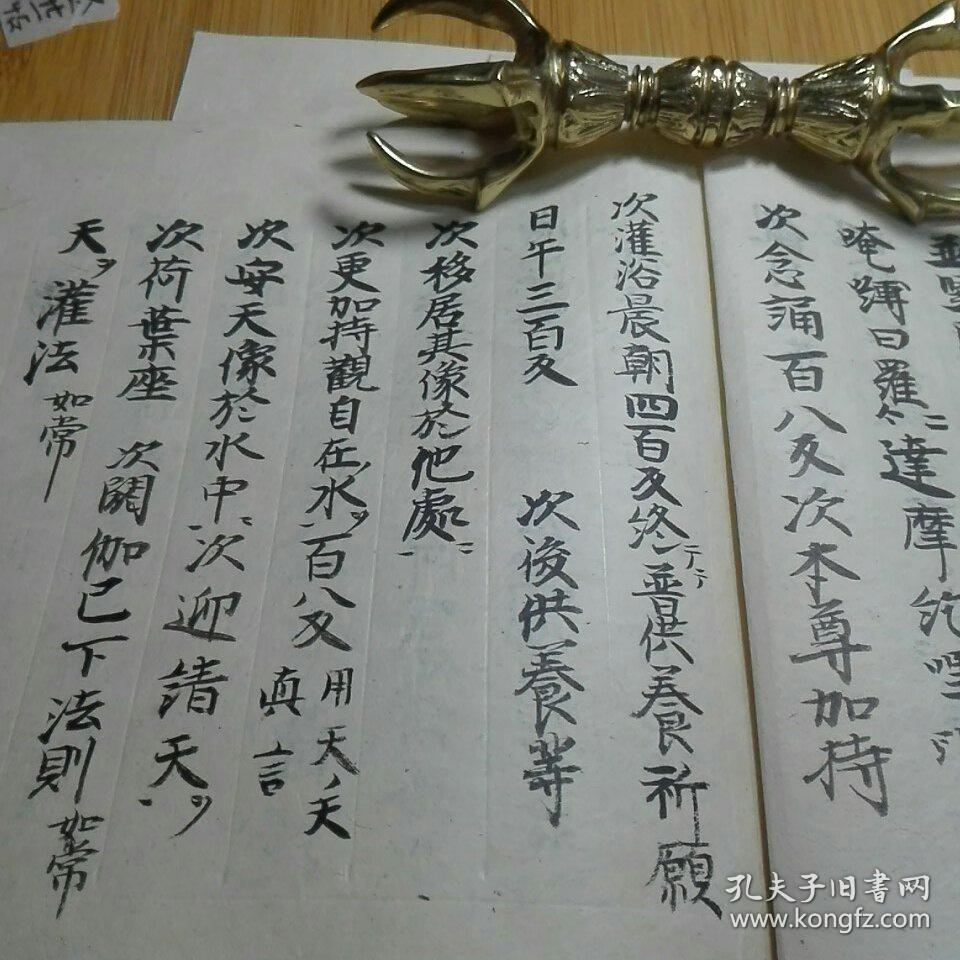 唵嚩日羅二合達摩紇哩
次念誦百八反次本尊加持
次灌浴晨朝四百反終テ普供養祈願
日午三百反 次後供養等
次移居其像於他處ニ
次更加持觀自在水ヲ百八反 用天ノ天
真言
次安天像於水中ニ次迎請天ヲ
次荷葉座 次閼伽已下法則如常
天ヲ灌法如常
孔夫子旧书网
www.kongfz.com